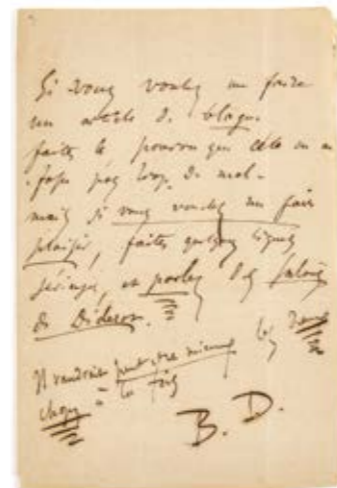 Si vous voulez me faire
un article de blague
faites le, pourvu que cela ne me
fasse pas trop de mal.
mais si vous voulez me faire
plaisir, faites quelques lignes
sérieuses, et parlez des Salons
de Diderot.
Il vaudrait peut-être mieux les deux
choses à la fois
B. D.